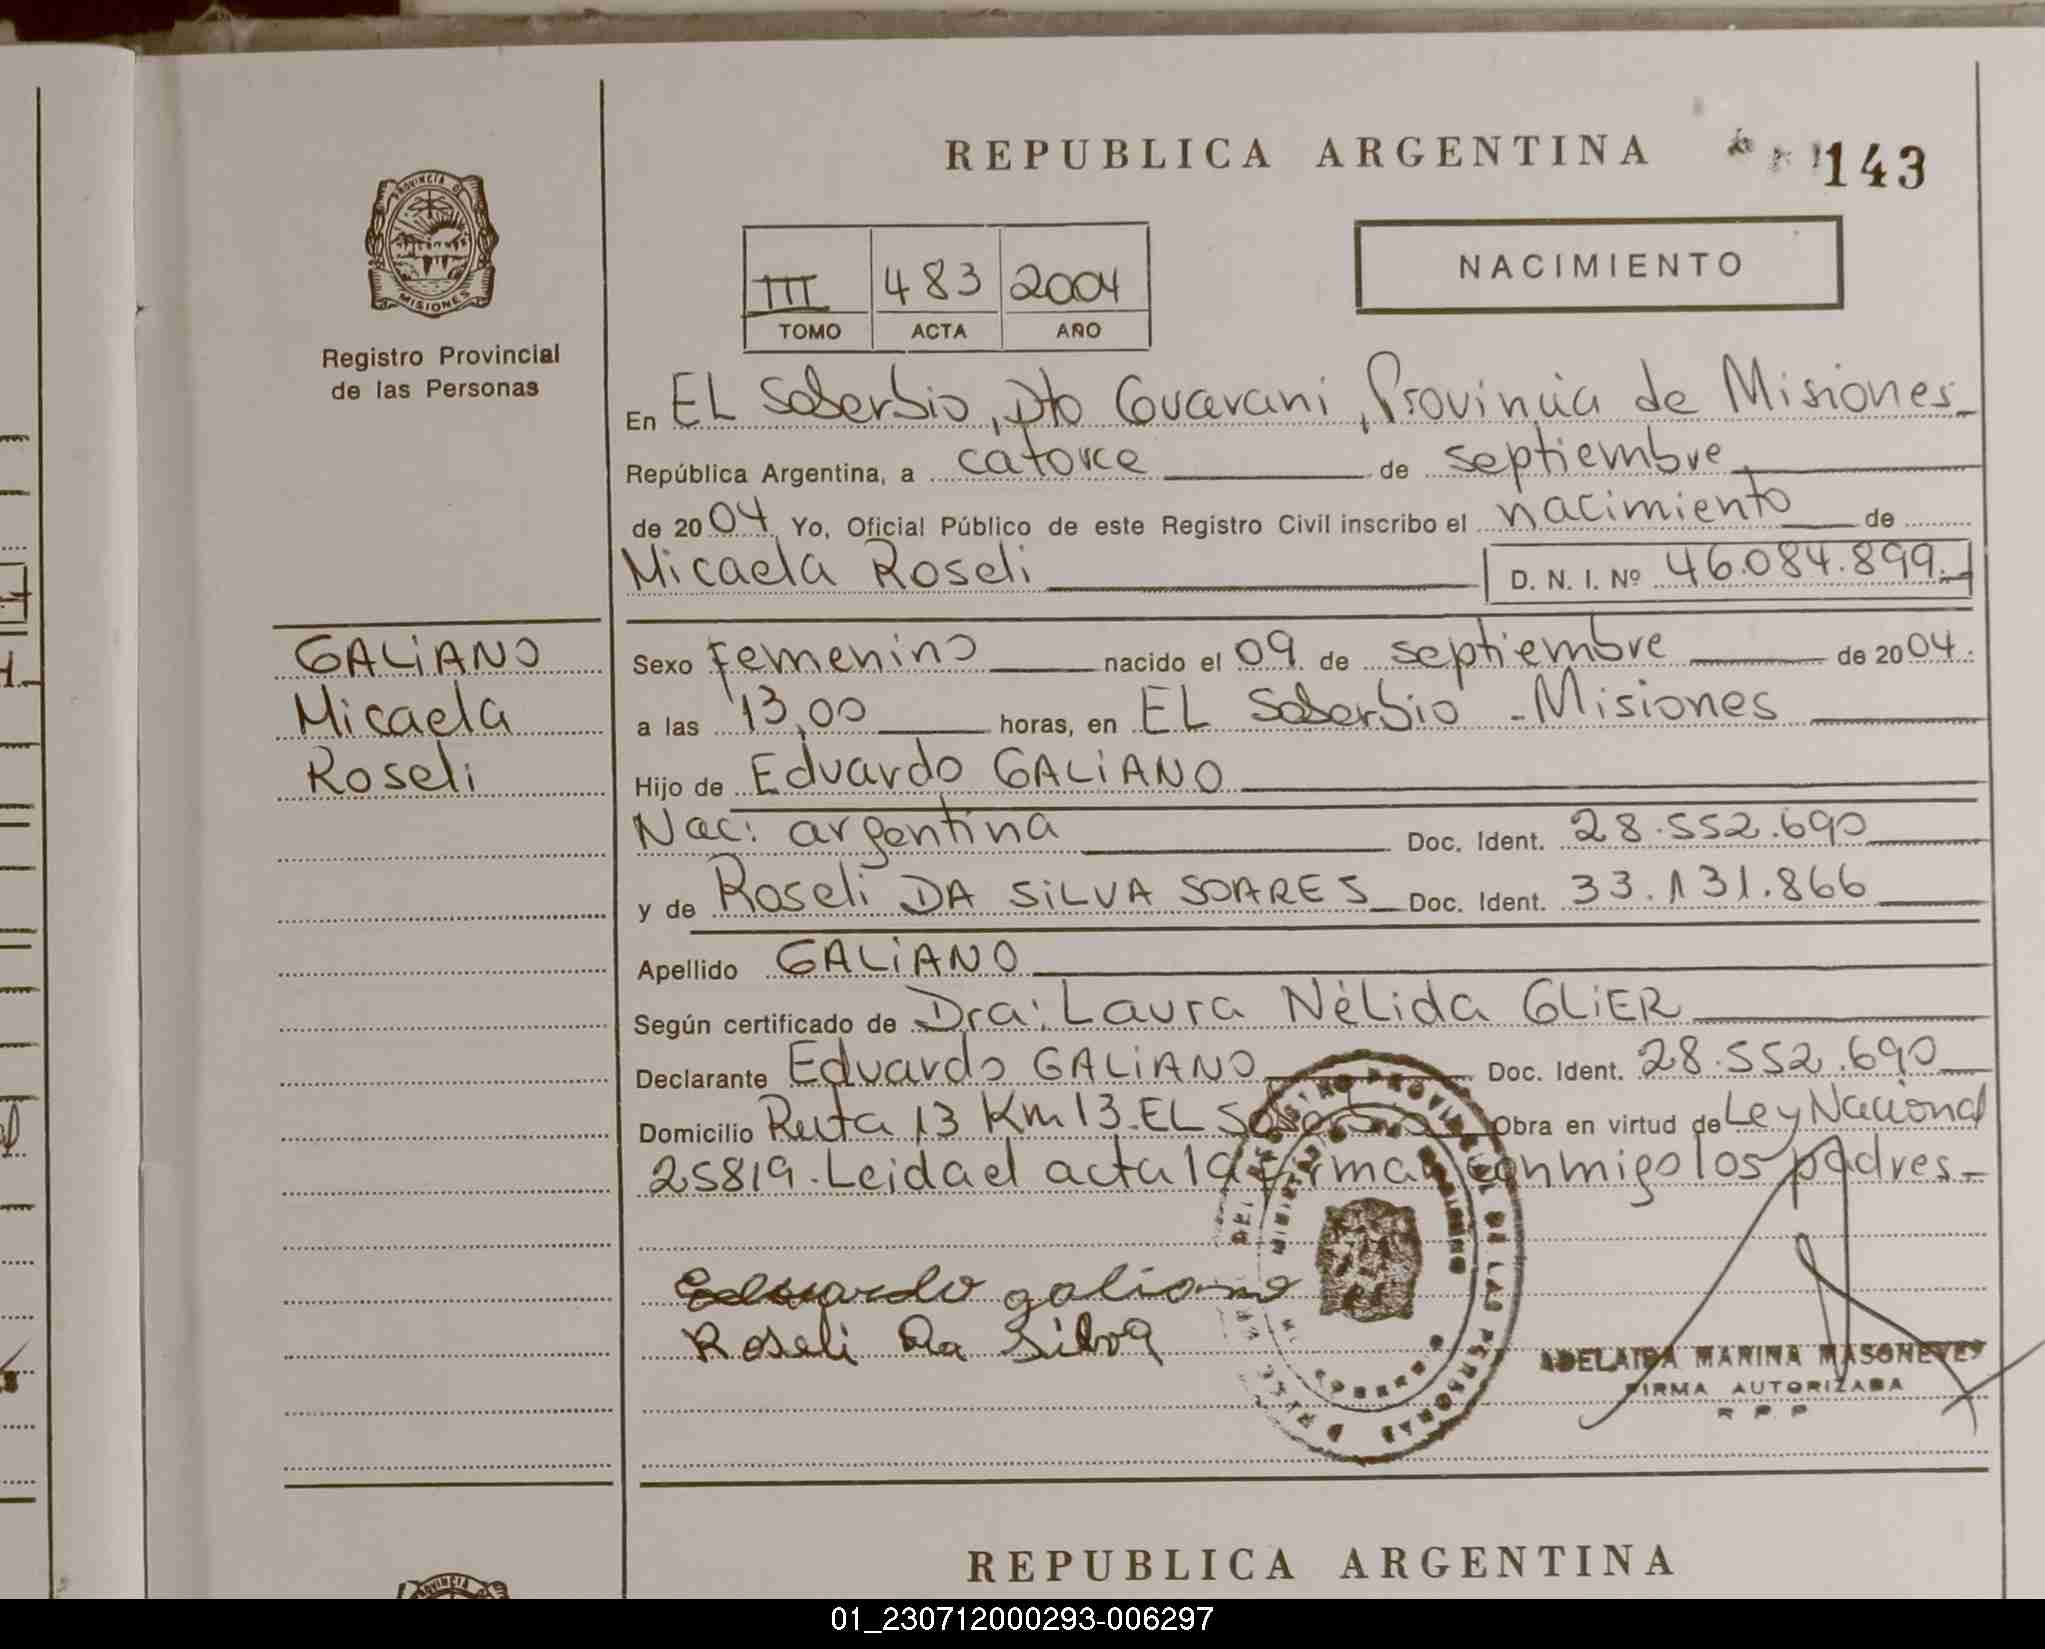 REPUBLICA ARGENTINA
143
PROVINCIA DE
MISIONES
Registro Provincial
de las Personas
III 483 2004
TOMO ACTA AÑO
NACIMIENTO
En EL Soberbio, Dto Guarani, Provincia de Misiones
República Argentina, a catorce de septiembre
de 2004 Yo, Oficial Público de este Registro Civil inscribo el nacimiento de
Micaela Roseli D. N. I. Nº 46.084.899.
GALiANO
Micaela
Roseli
Sexo femenino nacido el 09 de septiembre de 2004.
a las 13,00 horas, en EL Soberbio - Misiones
Hijo de Eduardo GALiANO
Nac: argentina Doc. Ident. 28.552.690
y de Roseli DA SiLVA SOARES Doc. Ident. 33.131.866
Apellido GALiANO
Según certificado de Dra: Laura Nélida GLiER
Declarante Eduardo GALiANO Doc. Ident. 28.552.690
Domicilio Ruta 13 Km 13. EL Soberbio Obra en virtud de Ley Nacional
25819. Leida el acta la firman conmigo los padres.
Eduardo galiano
Roseli Da Silva
DE LAS PERSONAS
ADELAIDA MARINA MASONEVE
FIRMA AUTORIZADA
R P P
REPUBLICA ARGENTINA
PROVINCIA
01_230712000293-006297